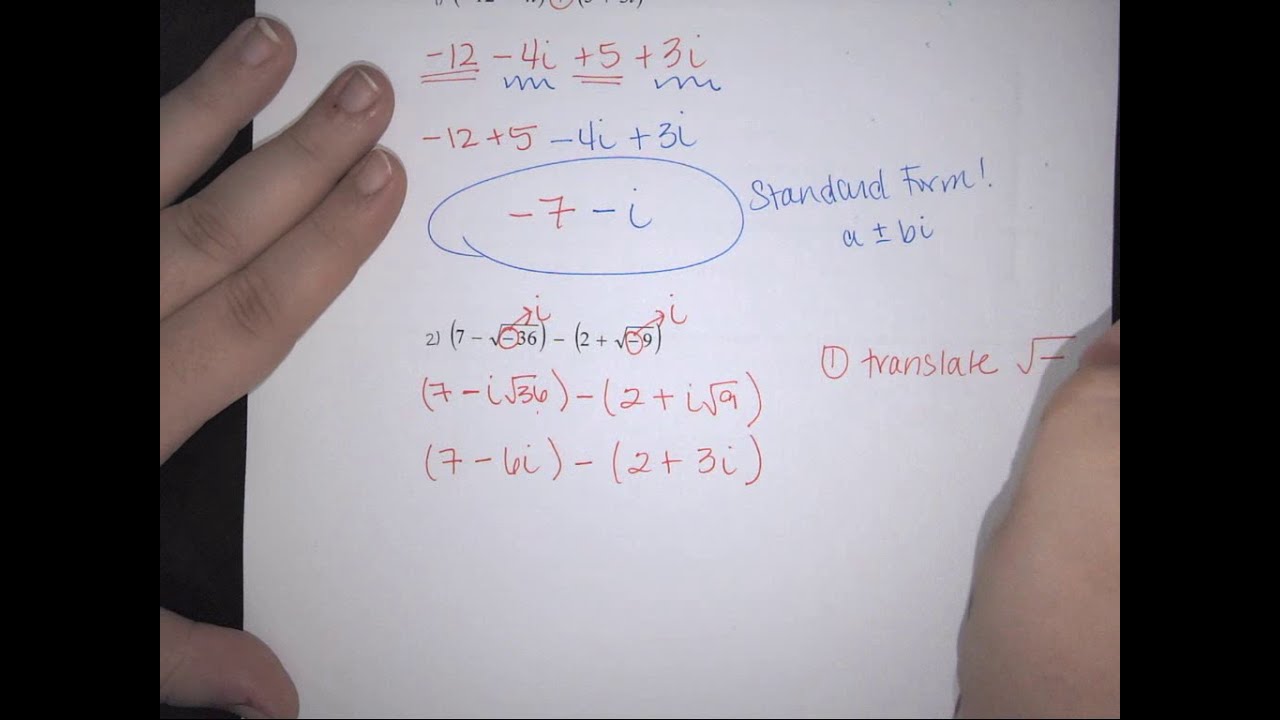 -12 - 4i + 5 + 3i
-12 + 5 - 4i + 3i
-7 - i
Standard Form!
a ± bi
i i
2) (7 - √-36) - (2 + √-9)
(7 - i√36) - (2 + i√9)
① translate √-
(7 - 6i) - (2 + 3i)